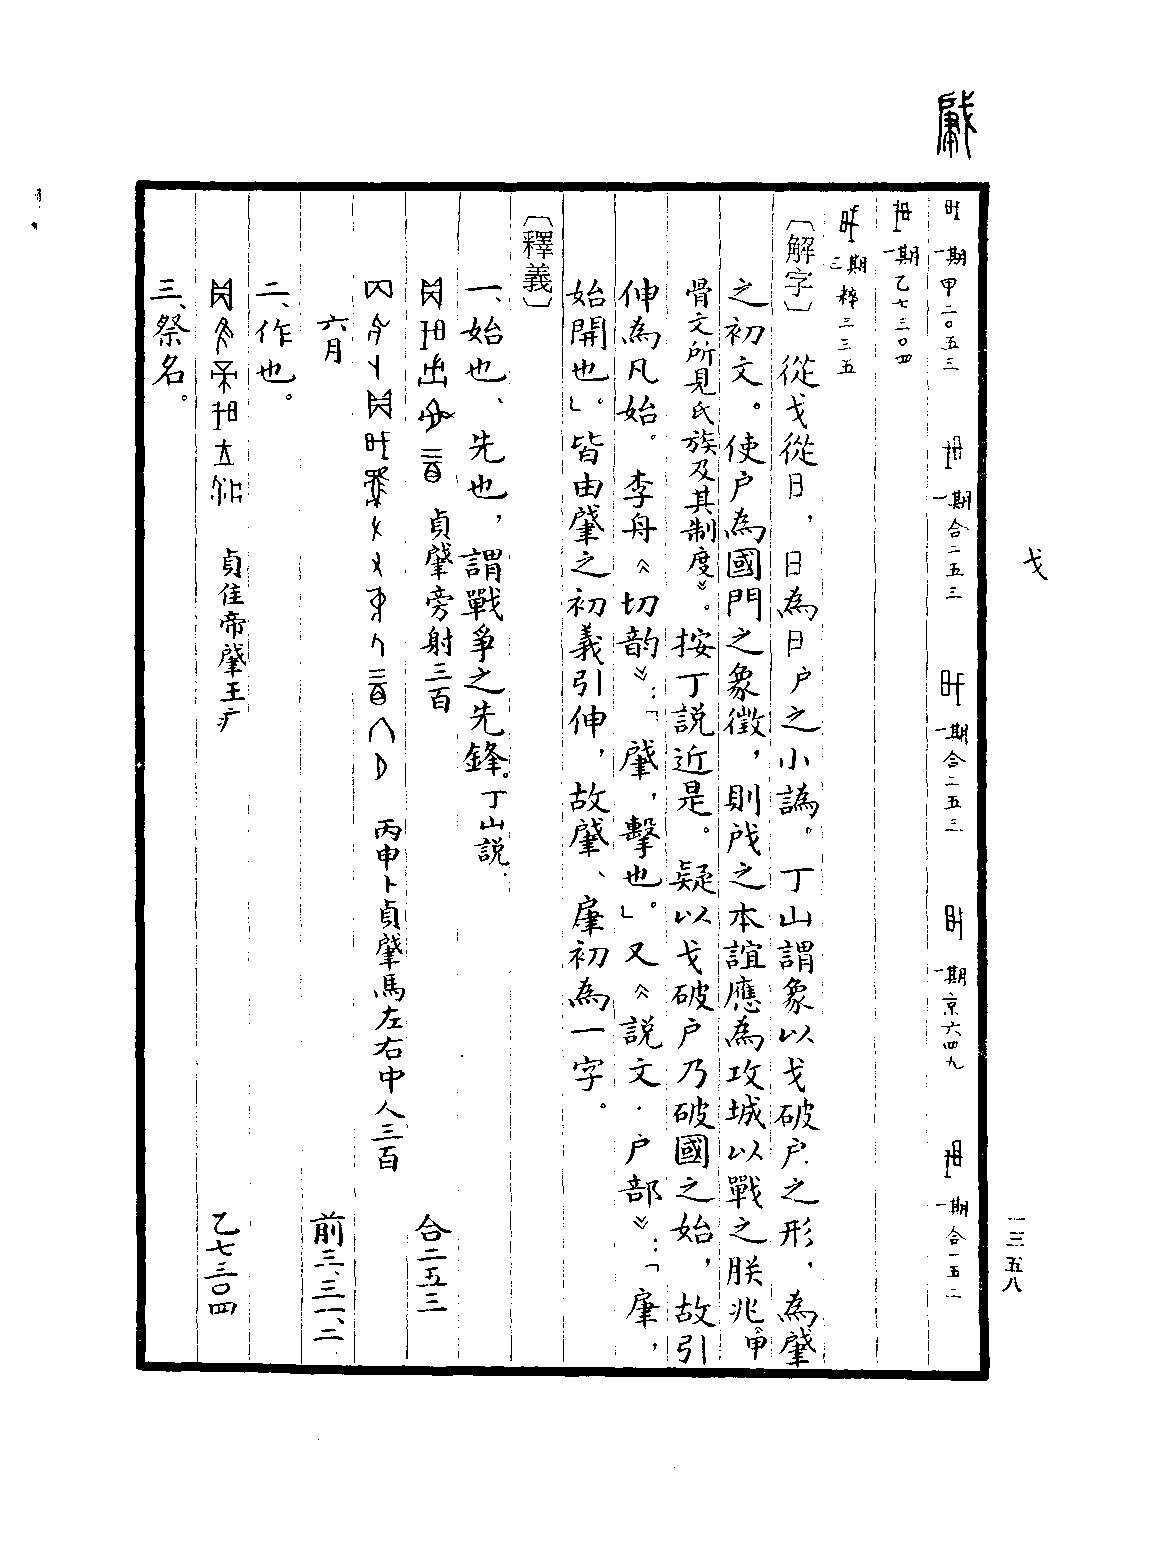 戈
一三五八
一期甲二〇五三 一期合二五三 一期合二五三 一期京六四九 一期合一五二
一期乙七三〇四
三期粹三三五
〔解字〕從戈從日，日為日戶之小譌。丁山謂象以戈破戶之形，為肇
之初文。使戶為國門之象徵，則戌之本誼應為攻城以戰之朕兆《甲
骨文所見氏族及其制度》。按丁說近是。疑以戈破戶乃破國之始，故引
伸為凡始。李舟《切韵》：「肈，擊也。」又《說文·戶部》：「肁，
始開也」。皆由肈之初義引伸，故肈、肁初為一字。
〔釋義〕
一、始也、先也，謂戰爭之先鋒。丁山說.
貞肈旁射三百 合二五三
丙申卜貞肈馬左右中人三百
六月 前三、三一、二
二、作也。
貞隹帝肈王疒 乙七三〇四
三、祭名。